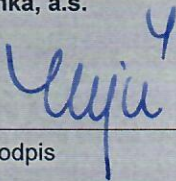 nka, a.s.
odpis